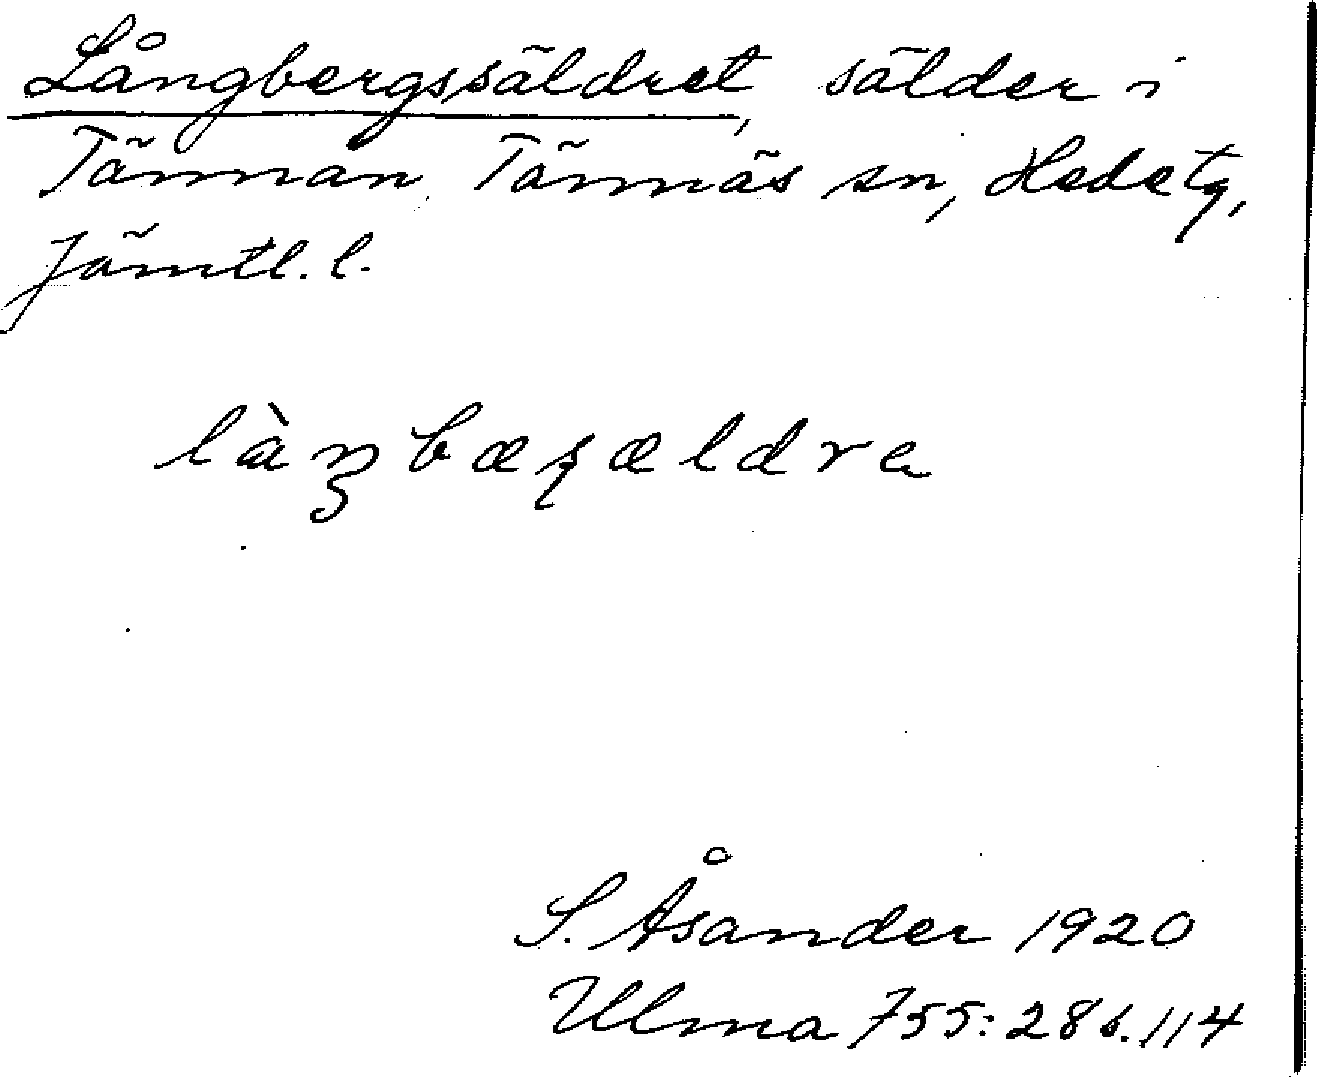 Långbergssäldret, sälder i
Tännan, Tännäs sn, Hede tg,
Jämtl. l.
làŋbæʂældra
S. Åsander 1920
Ulma 755: 28 s. 114